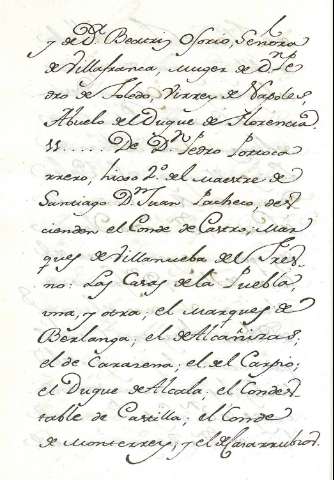 y de D.ª Beatriz Osorio, Señora
de Villafranca, muger de D.n Pe
dro de Toledo, Virrey de Napoles,
Abuelo del Duque de Florencia.
11...... De D.n Pedro Portoca
rrero, hixo 2.º del Maestre de
Santiago D.n Juan Pacheco, des
cienden el Conde de Castro, Mar
ques de Villanueba del Fres
no: Las Casas de la Puebla,
una, y otra; el Marques de
Berlanga; el de Alcañizas;
el de Caracena; el del Carpio;
el Duque de Alcala; el Condes
table de Castilla; el Conde
de Monterrey, y el de Casarrubios.